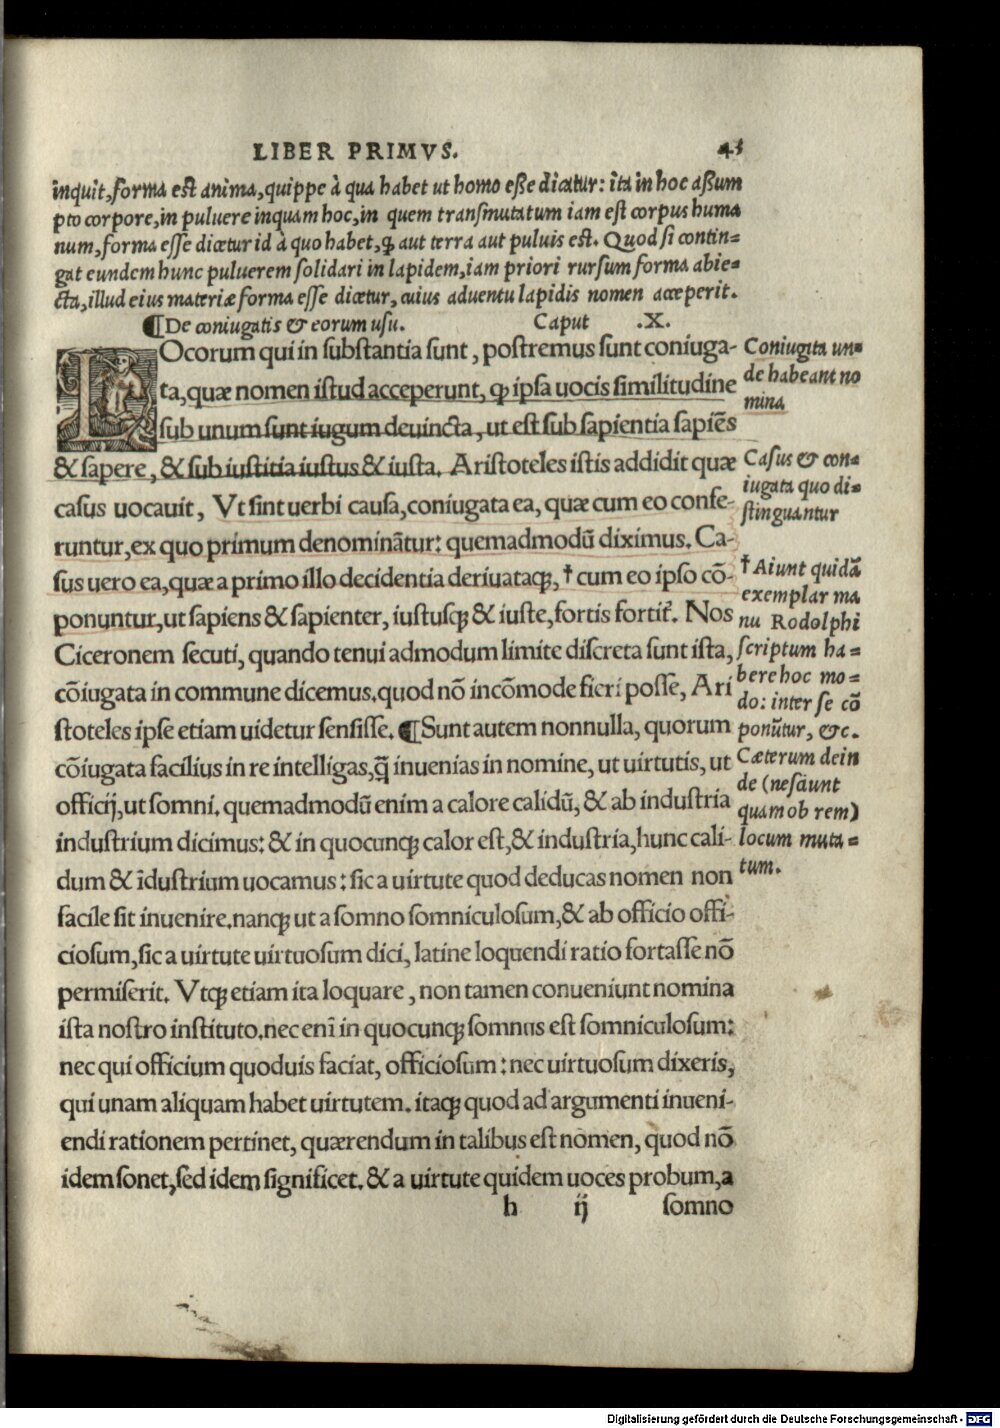 LIBER PRIMVS. 43
inquit, forma est anima, quippe à qua habet ut homo eße dicatur: ita in hoc aßum
pto corpore, in puluere inquam hoc, in quem transmutatum iam est corpus huma
num, forma esse dicetur id à quo habet, ꝙ aut terra aut puluis est. Quod si contin=
gat eundem hunc puluerem solidari in lapidem, iam priori rursum forma abie=
cta, illud eius materiæ forma esse dicetur, cuius aduentu lapidis nomen acceperit.
¶De coniugatis & eorum usu. Caput .X.
LOcorum qui in substantia sunt, postremus sunt coniuga-
ta, quæ nomen istud acceperunt, ꝙ ipsa uocis similitudine
sub unum sunt iugum deuincta, ut est sub sapientia sapiẽs
& sapere, & sub iustitia iustus & iusta. Aristoteles istis addidit quæ
casus uocauit, Vt sint uerbi causa, coniugata ea, quæ cum eo confe-
runtur, ex quo primum denominãtur: quemadmodũ diximus. Ca-
sus uero ea, quæ a primo illo decidentia deriuataꝗ, † cum eo ipso cõ-
ponuntur, ut sapiens & sapienter, iustusꝗ & iuste, fortis fortiť. Nos
Ciceronem secuti, quando tenui admodum limite discreta sunt ista,
cõiugata in commune dicemus. quod nõ incõmode fieri posse, Ari
stoteles ipse etiam uidetur sensisse. ¶Sunt autem nonnulla, quorum
cõiugata facilius in re intelligas, q̃ inuenias in nomine, ut uirtutis, ut
officij, ut somni. quemadmodũ enim a calore calidũ, & ab industria
industrium dicimus: & in quocunꝗ calor est, & industria, hunc cali-
dum & ĩdustrium uocamus: sic a uirtute quod deducas nomen non
facile sit inuenire. nanꝗ ut a somno somniculosum, & ab officio offi-
ciosum, sic a uirtute uirtuosum dici, latine loquendi ratio fortasse nõ
permiserit. Vtꝗ etiam ita loquare, non tamen conueniunt nomina
ista nostro instituto. nec enĩ in quocunꝗ somnus est somniculosum:
nec qui officium quoduis faciat, officiosum: nec uirtuosum dixeris,
qui unam aliquam habet uirtutem. itaꝗ quod ad argumenti inueni-
endi rationem pertinet, quærendum in talibus est nomen, quod nõ
idem sonet, sed idem significet. & a uirtute quidem uoces probum, a
h ij somno
Coniugata un=
de habeant no
mina
Casus & con=
iugata quo di=
stinguantur
† Aiunt quidã
exemplar ma
nu Rodolphi
scriptum ha=
bere hoc mo=
do: inter se cõ
ponũtur, &c.
Cæterum dein
de (nesciunt
quam ob rem)
locum muta=
tum.
Digitalisierung gefördert durch die Deutsche Forschungsgemeinschaft - DFG